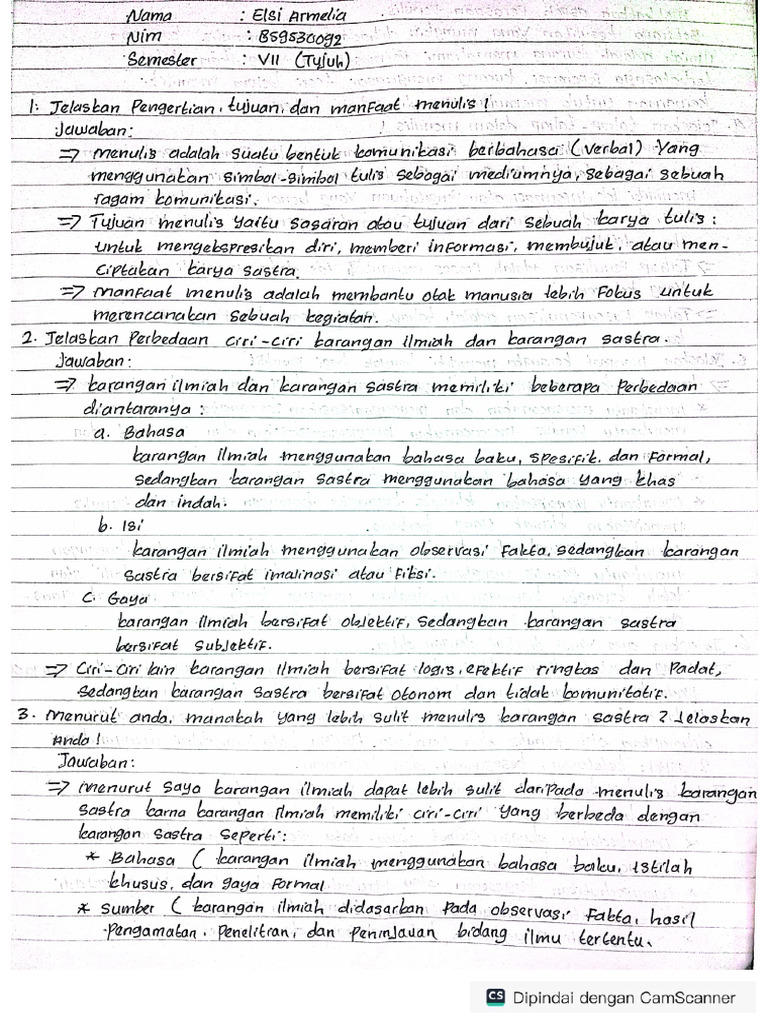 Nama : Elsi Armelia
Nim : 859530092
Semester : VII (Tujuh)
1. Jelaskan Pengertian, tujuan, dan manfaat menulis!
Jawaban:
=> menulis adalah suatu bentuk komunikasi berbahasa (verbal) yang
menggunakan simbol-simbol tulis sebagai mediumnya, sebagai sebuah
ragam komunikasi.
=> Tujuan menulis yaitu sasaran atau tujuan dari sebuah karya tulis:
untuk mengekspresikan diri, memberi informasi, membujuk, atau men-
ciptakan karya sastra.
=> manfaat menulis adalah membantu otak manusia lebih fokus untuk
merencanakan sebuah kegiatan.
2. Jelaskan Perbedaan ciri-ciri karangan ilmiah dan karangan sastra.
Jawaban:
=> karangan ilmiah dan karangan sastra memiliki beberapa Perbedaan
diantaranya:
a. Bahasa
karangan ilmiah menggunakan bahasa baku, spesifik. dan formal,
sedangkan karangan sastra menggunakan bahasa yang khas
dan indah.
b. Isi
karangan ilmiah menggunakan observasi fakta, sedangkan karangan
sastra bersifat imalinasi atau fiksi.
c. Gaya
karangan ilmiah bersifat objektif, sedangkan karangan sastra
bersifat subjektif.
=> Ciri-ciri lain karangan ilmiah bersifat logis, efektif ringkas dan Padat,
sedangkan karangan sastra bersifat otonom dan tidak komunitatif.
3. menurut anda, manakah yang lebih sulit menulis karangan sastra? Jelaskan
Anda!
Jawaban:
=> menurut saya karangan ilmiah dapat lebih sulit daripada menulis karangan
sastra karna karangan ilmiah memiliki ciri-ciri yang berbeda dengan
karangan sastra seperti:
* Bahasa ( karangan ilmiah menggunakan bahasa baku, istilah
khusus, dan gaya formal
* sumber ( karangan ilmiah didasarkan Pada observasi fakta, hasil
Pengamatan, Penelitian, dan Peninjauan bidang ilmu tertentu.
CS Dipindai dengan CamScanner